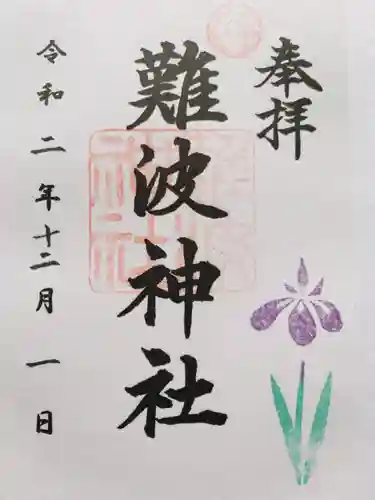 奉拝
難波神社
令和二年十二月一日